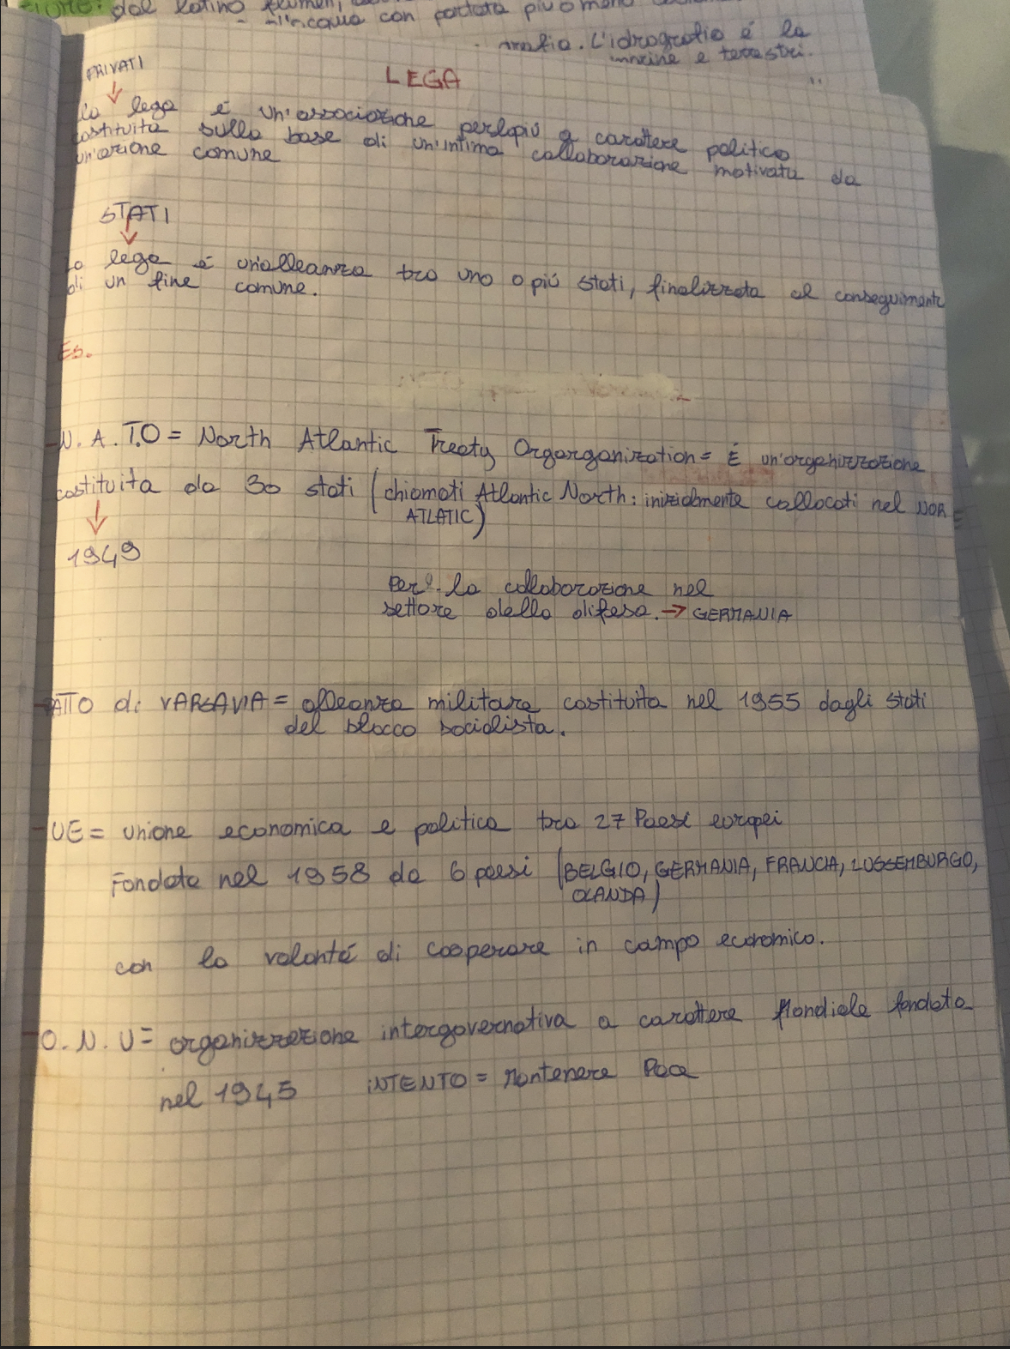 dal latino flumen,
all'acqua con portata più o meno
grafia. L'idrografia é la
marine e terrestri.
PRIVATI
LEGA
La lega é un'associazione perlopiú a carattere politico
costituita sulla base di un'intima collaborazione motivata da
un'azione comune
STATI
La lega é un'alleanza tra uno o piú stati, finalizzata al conseguimento
di un fine comune.
Es.
- N.A.T.O = North Atlantic Treaty Orgarganization = É un'organizzazione
costituita da 30 stati (chiamati Atlantic North: inizialmente collocati nel NOR=
ATLATIC)
1949
Per la collaborazione nel
settore della difesa. → GERMANIA
- PATTO di VARSAVIA = alleanza militare costituita nel 1955 dagli stati
del blocco socialista.
- UE = unione economica e politica tra 27 Paesi europei
Fondata nel 1958 da 6 paesi (BELGIO, GERMANIA, FRANCIA, LUSSEMBURGO,
OLANDA)
con la volontá di cooperare in campo economico.
- O.N.U = organizzazione intergovernativa a carattere Mondiale fondata
nel 1945 INTENTO = Mantenere Pace